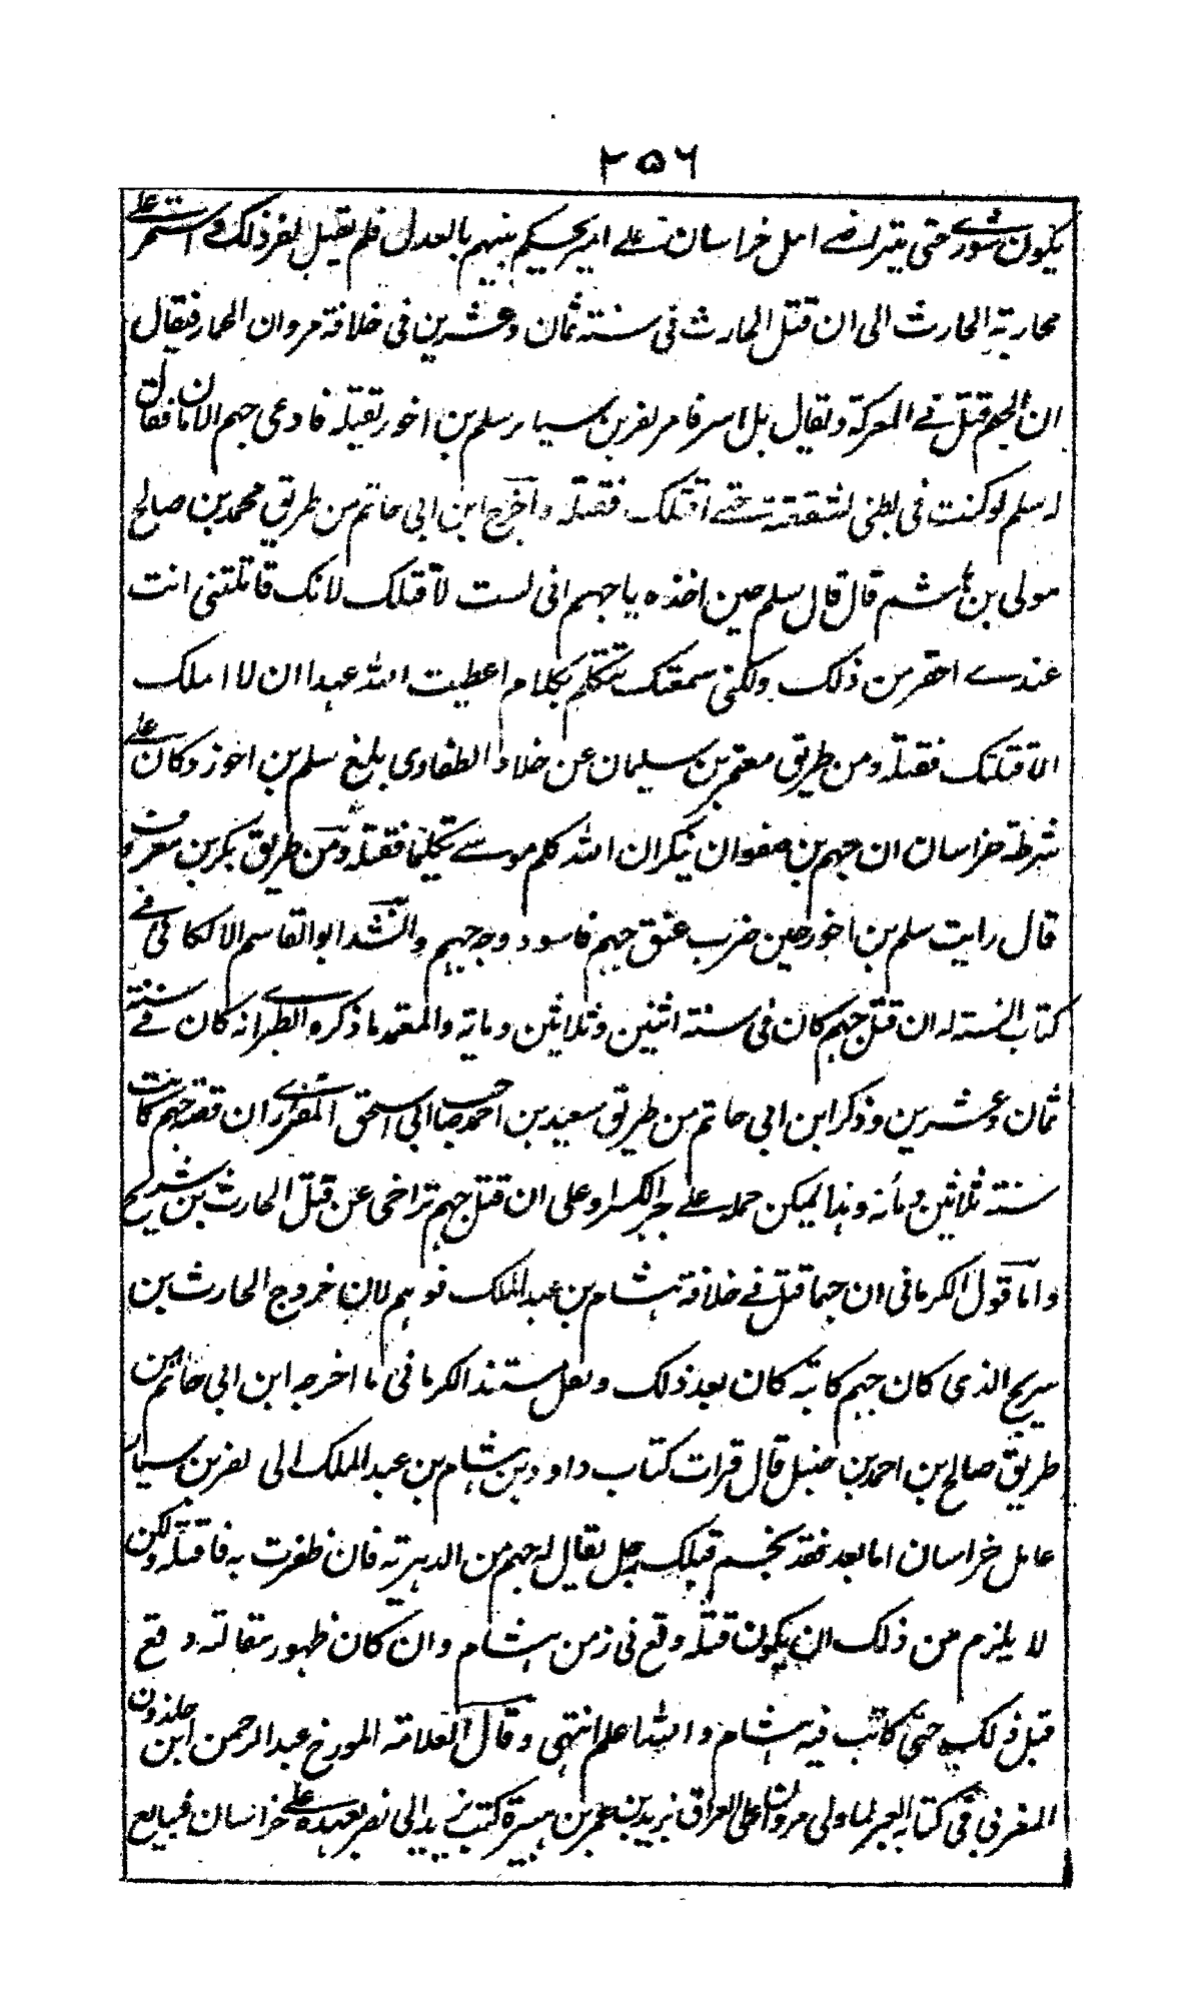 ۲۵۶
يكون شورى حتى يتراضى اهل خراسان على امير يحكم بينهم بالعدل فلم يقبل نصر ذلك واستمر على
محاربة الحارث الى ان قتل الحارث فى سنة ثمان وعشرين فى خلافة مروان الحمار فيقال
ان الجهم قتل فى المعركة ويقال بل اسر فامر نصر بن سيار سلم بن احوز بقتله فادعى جهم الامان فقال
له سلم لو كنت فى بطنى لشققته حتى اقتلك فقتله واخرج ابن ابى حاتم من طريق محمد بن صالح
مولى بن هاشم قال قال سلم حين اخذه يا جهم انى لست لاقتلك لانك قاتلتنى انت
عندى احقر من ذلك ولكنى سمعتك تتكلم بكلام اعطيت الله عهدا ان لا املك
الا قتلتك فقتله ومن طريق معتمر بن سليمان عن خلاد الطفاوى بلغ سلم بن احوز وكان على
شرطة خراسان ان جهم بن صفوان ينكر ان الله كلم موسى تكليما فقتله ومن طريق بكير بن معروف
قال رايت سلم بن احوز حين ضرب عنق جهم فاسود وجه جهم واسند ابو القاسم الالكائى فى
كتاب السنة له ان قتل جهم كان فى سنة اثنين وثلاثين وماية والمعتمد ما ذكره الطبرى انه كان فى سنة
ثمان وعشرين وذكر ابن ابى حاتم من طريق سعيد بن احمد صاحب ابى اسحق الفزارى ان قصة جهم كانت
سنة ثلاثين ومأئة وهذا يمكن حمله على جبر الكسر او على ان قتل جهم تراخى عن قتل الحارث بن شريح
واما قول الكرمانى ان جهما قتل فى خلافة هشام بن عبد الملك فوهم لان خروج الحارث بن
سريج الذى كان جهم كاتبه كان بعد ذلك ولعل مستند الكرمانى ما اخرجه ابن ابى حاتم من
طريق صالح بن احمد بن حنبل قال قرات كتاب داود بن هشام بن عبد الملك الى نصر بن سيار
عامل خراسان اما بعد فقد نجم قبلك رجل يقال له جهم من الدهرية فان ظفرت به فاقتله ولكن
لا يلزم من ذلك ان يكون قتله وقع فى زمن هشام وان كان ظهور مقالته وقع
قبل ذلك حتى كاتب فيه هشام والله اعلم انتهى وقال العلامة المورخ عبد الرحمن ابن خلدون
المغربى فى كتابه العبر لما ولى مروان على العراق يزيد بن عمر بن هبيرة كتب يزيد الى نصر بعهده على خراسان فبايع